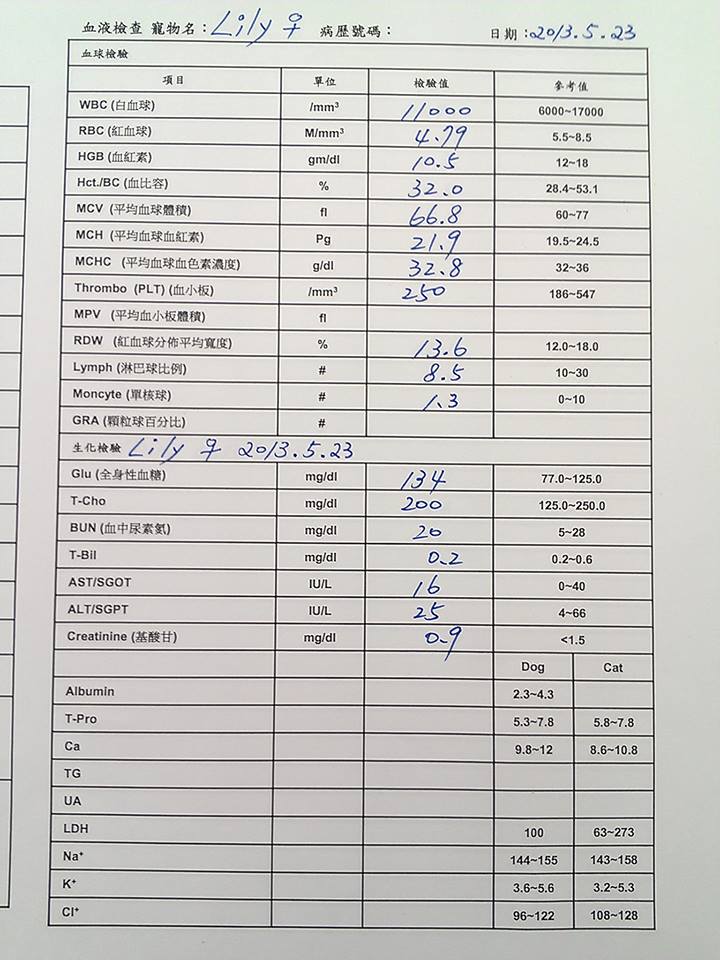 血液檢查 寵物名：Lily ♀ 病歷號碼： 日期：2013.5.23
血球檢驗
項目 單位 檢驗值 參考值
WBC (白血球) /mm³ 11000 6000~17000
RBC (紅血球) M/mm³ 4.79 5.5~8.5
HGB (血紅素) gm/dl 10.5 12~18
Hct./BC (血比容) % 32.0 28.4~53.1
MCV (平均血球體積) fl 66.8 60~77
MCH (平均血球血紅素) Pg 21.9 19.5~24.5
MCHC (平均血球血色素濃度) g/dl 32.8 32~36
Thrombo (PLT) (血小板) /mm³ 250 186~547
MPV (平均血小板體積) fl
RDW (紅血球分佈平均寬度) % 13.6 12.0~18.0
Lymph (淋巴球比例) # 8.5 10~30
Moncyte (單核球) # 1.3 0~10
GRA (顆粒球百分比) #
生化檢驗 Lily ♀ 2013.5.23
Glu (全身性血糖) mg/dl 134 77.0~125.0
T-Cho mg/dl 200 125.0~250.0
BUN (血中尿素氮) mg/dl 20 5~28
T-Bil mg/dl 0.2 0.2~0.6
AST/SGOT IU/L 16 0~40
ALT/SGPT IU/L 25 4~66
Creatinine (基酸甘) mg/dl 0.9 <1.5
Dog Cat
Albumin 2.3~4.3
T-Pro 5.3~7.8 5.8~7.8
Ca 9.8~12 8.6~10.8
TG
UA
LDH 100 63~273
Na⁺ 144~155 143~158
K⁺ 3.6~5.6 3.2~5.3
Cl⁺ 96~122 108~128